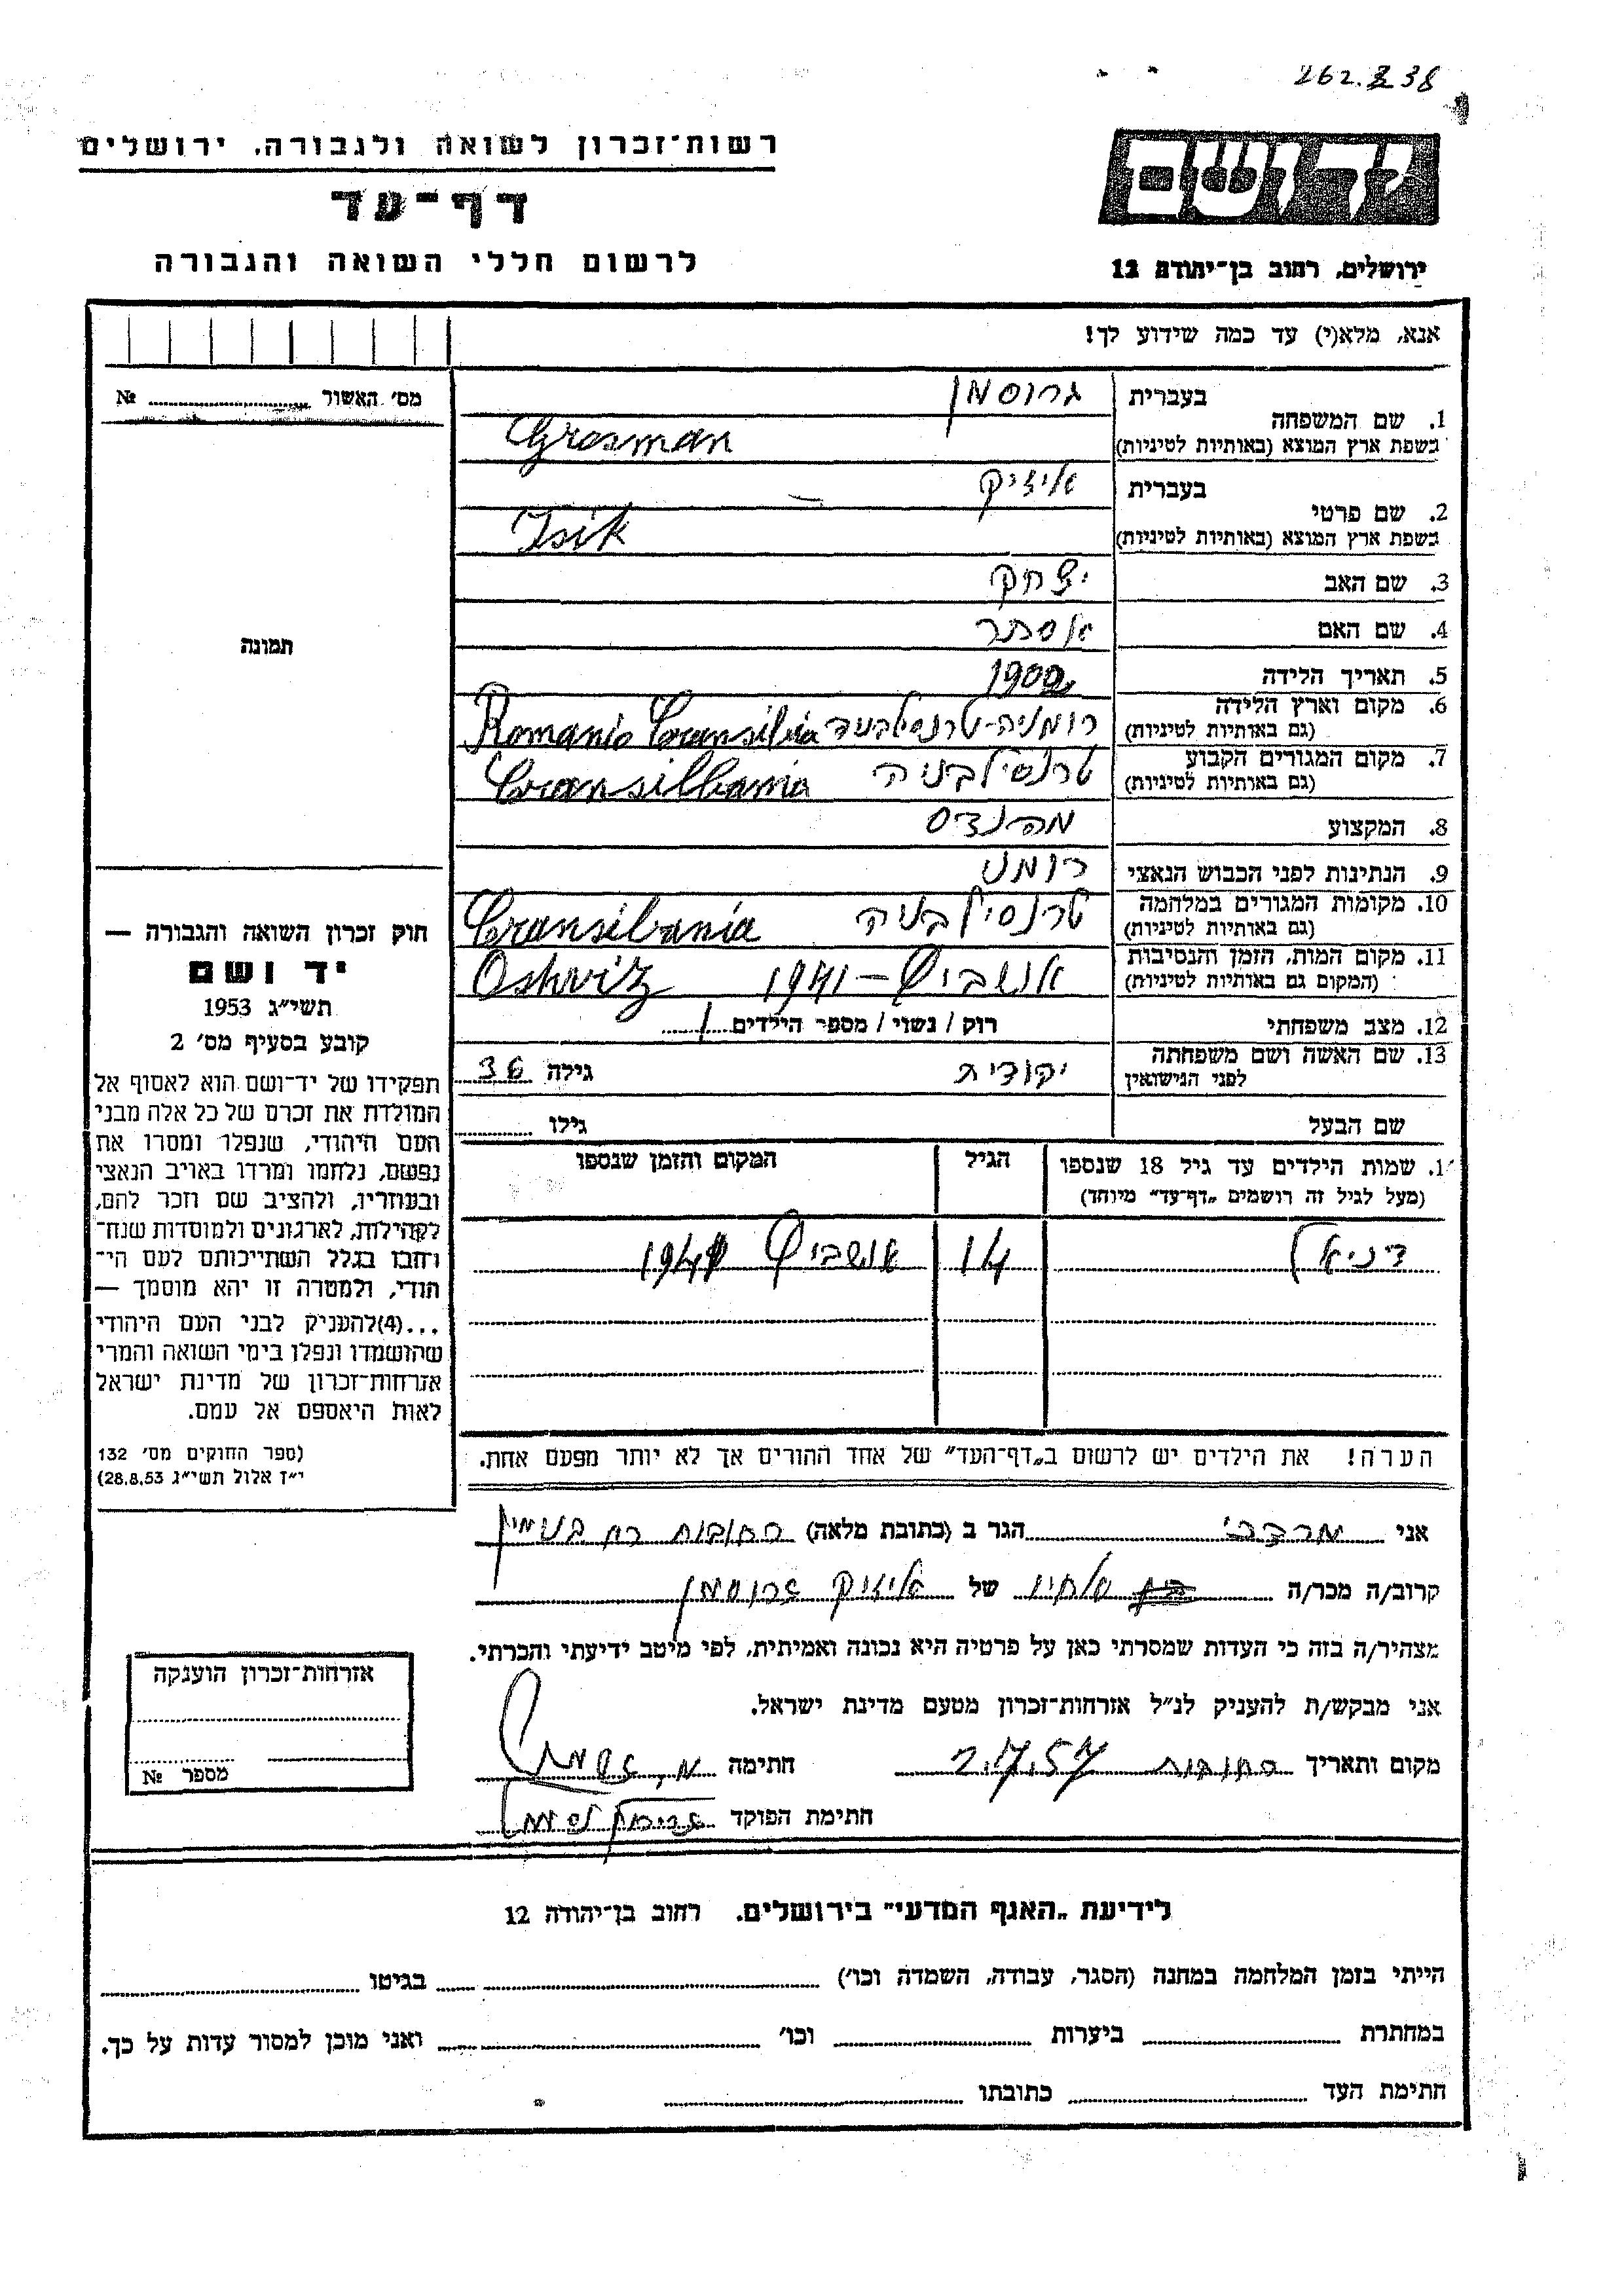 262.238
רשות־זכרון לשואה ולגבורה, ירושלים
יד ושם
דף־עד
לרשום חללי השואה והגבורה
ירושלים, רחוב בן־יהודה 12
אנא, מלא(י) עד כמה שידוע לך!
מס׳ האשור № 
1. שם המשפחה בעברית גרוסמן
בשפת ארץ המוצא (באותיות לטיניות) Grosman
2. שם פרטי בעברית איזיק
בשפת ארץ המוצא (באותיות לטיניות) Isik
3. שם האב יצחק
4. שם האם אסתר
תמונה
5. תאריך הלידה 1900
6. מקום וארץ הלידה רומניה-טרנסילבניה Romania Transilvia
(גם באותיות לטיניות)
7. מקום המגורים הקבוע טרנסילבניה Transilbania
(גם באותיות לטיניות)
8. המקצוע מהנדס
9. הנתינות לפני הכבוש הנאצי רומני
10. מקומות המגורים במלחמה טרנסילבניה Transilbania
(גם באותיות לטיניות)
11. מקום המות, הזמן והנסיבות אושביץ – 1941 Oshviz
(המקום גם באותיות לטיניות)
12. מצב משפחתי רוק / נשוי / מספר הילדים 1
13. שם האשה ושם משפחתה יהודית גילה 36
לפני הנישואין
שם הבעל גילו
1. שמות הילדים עד גיל 18 שנספו הגיל המקום והזמן שנספו
(מעל לגיל זה רושמים „דף־עד״ מיוחד)
דניאל 14 אושביץ 1941
הערה! את הילדים יש לרשום ב„דף־העד״ של אחד ההורים אך לא יותר מפעם אחת.
חוק זכרון השואה והגבורה —
יד ושם
תשי״ג 1953
קובע בסעיף מס׳ 2
תפקידו של יד־ושם הוא לאסוף אל
המולדת את זכרם של כל אלה מבני
העם היהודי, שנפלו ומסרו את
נפשם, נלחמו ומרדו באויב הנאצי
ובעוזריו, ולהציב שם וזכר להם,
לקהילות, לארגונים ולמוסדות שנח־
רחבו בגלל השתייכותם לעם הי־
הודי, ולמטרה זו יהא מוסמך —
...(4)להעניק לבני העם היהודי
שהושמדו ונפלו בימי השואה והמרי
אזרחות־זכרון של מדינת ישראל
לאות היאספם אל עמם.
(ספר החוקים מס׳ 132
י״ז אלול תשי״ג 28.8.53)
אני מרדכי הגר ב (כתובת מלאה) רחובות רח בנימין
קרוב/ה מכר/ה של איזיק גרוסמן
מצהיר/ה בזה כי העדות שמסרתי כאן על פרטיה היא נכונה ואמיתית, לפי מיטב ידיעתי והכרתי.
אני מבקש/ת להעניק לנ״ל אזרחות־זכרון מטעם מדינת ישראל.
מקום ותאריך רחובות 2.7.57 חתימה
חתימת הפוקד
אזרחות־זכרון הוענקה
מספר №
לידיעת „האגף המדעי״ בירושלים. רחוב בן־יהודה 12
הייתי בזמן המלחמה במחנה (הסגר, עבודה, השמדה וכו׳) בגיטו
במחתרת ביערות וכו׳ ואני מוכן למסור עדות על כך.
חתימת העד כתובתו